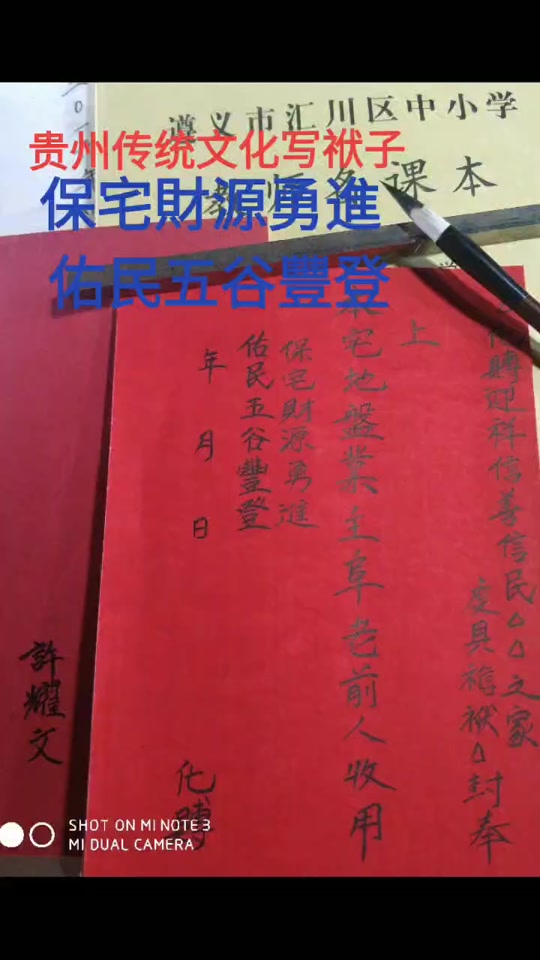 遵义市汇川区中小学
教师备课本
贵州传统文化写袱子
保宅財源勇進
佑民五谷豐登
祥信善信民△△之家
虔具袍袱△封奉
上
宅地盤業主阜老前人收用
保宅財源勇進
佑民五谷豐登
年 月 日
化
許耀文
SHOT ON MI NOTE 3
MI DUAL CAMERA